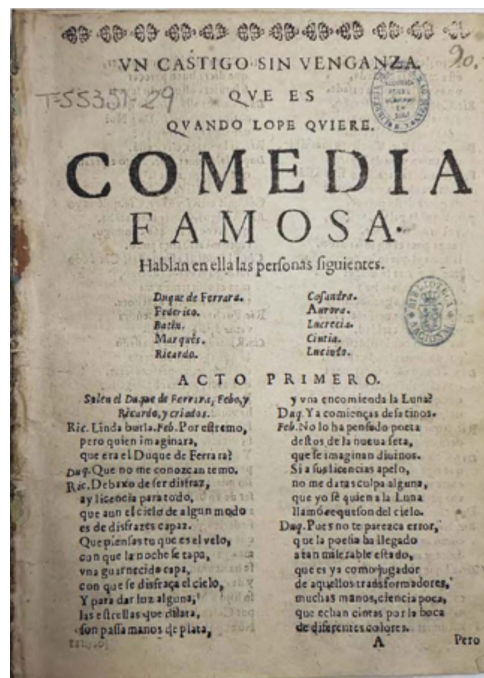 VN CASTIGO SIN VENGANZA.
90.
T-55351-29
QVE ES
QVANDO LOPE QVIERE.
COMEDIA
FAMOSA.
Hablan en ella las personas siguientes.
Duque de Ferrara.
Federico.
Batin.
Marques.
Ricardo.
Casandra.
Aurora.
Lucrecia.
Cintia.
Lucindo.
BIBLIOTECA NACIONAL
ACTO PRIMERO.
Salen el Duque de Ferrara, Febo, y
Ricardo, y criados.
Ric. Linda burla. Feb. Por estremo,
pero quien imaginara,
que era el Duque de Ferrara?
Duq. Que no me conozcan temo.
Ric. Debaxo de ser disfraz,
ay licencia para todo,
que aun el cielo de algun modo
es de disfrazes capaz.
Que piensas tu que es el velo,
con que la noche se tapa,
vna guarnecida capa,
con que se disfraça el cielo,
Y para dar luz alguna,
las estrellas que dilata,
son passamanos de plata,
y vna encomienda la Luna?
Duq. Ya comienças desatinos.
Feb. No lo ha pensado poeta
destos de la nueua seta,
que se imaginan diuinos.
Si a sus licencias apelo,
no me daras culpa alguna,
que yo sè quien a la Luna
llamò requeson del cielo.
Duq. Pues no te parezca error,
que la poesia ha llegado
a tan miserable estado,
que es ya como jugador
de aquellos transformadores,
muchas manos, ciencia poca,
que echan cintas por la boca
de diferentes colores.
A
Pero